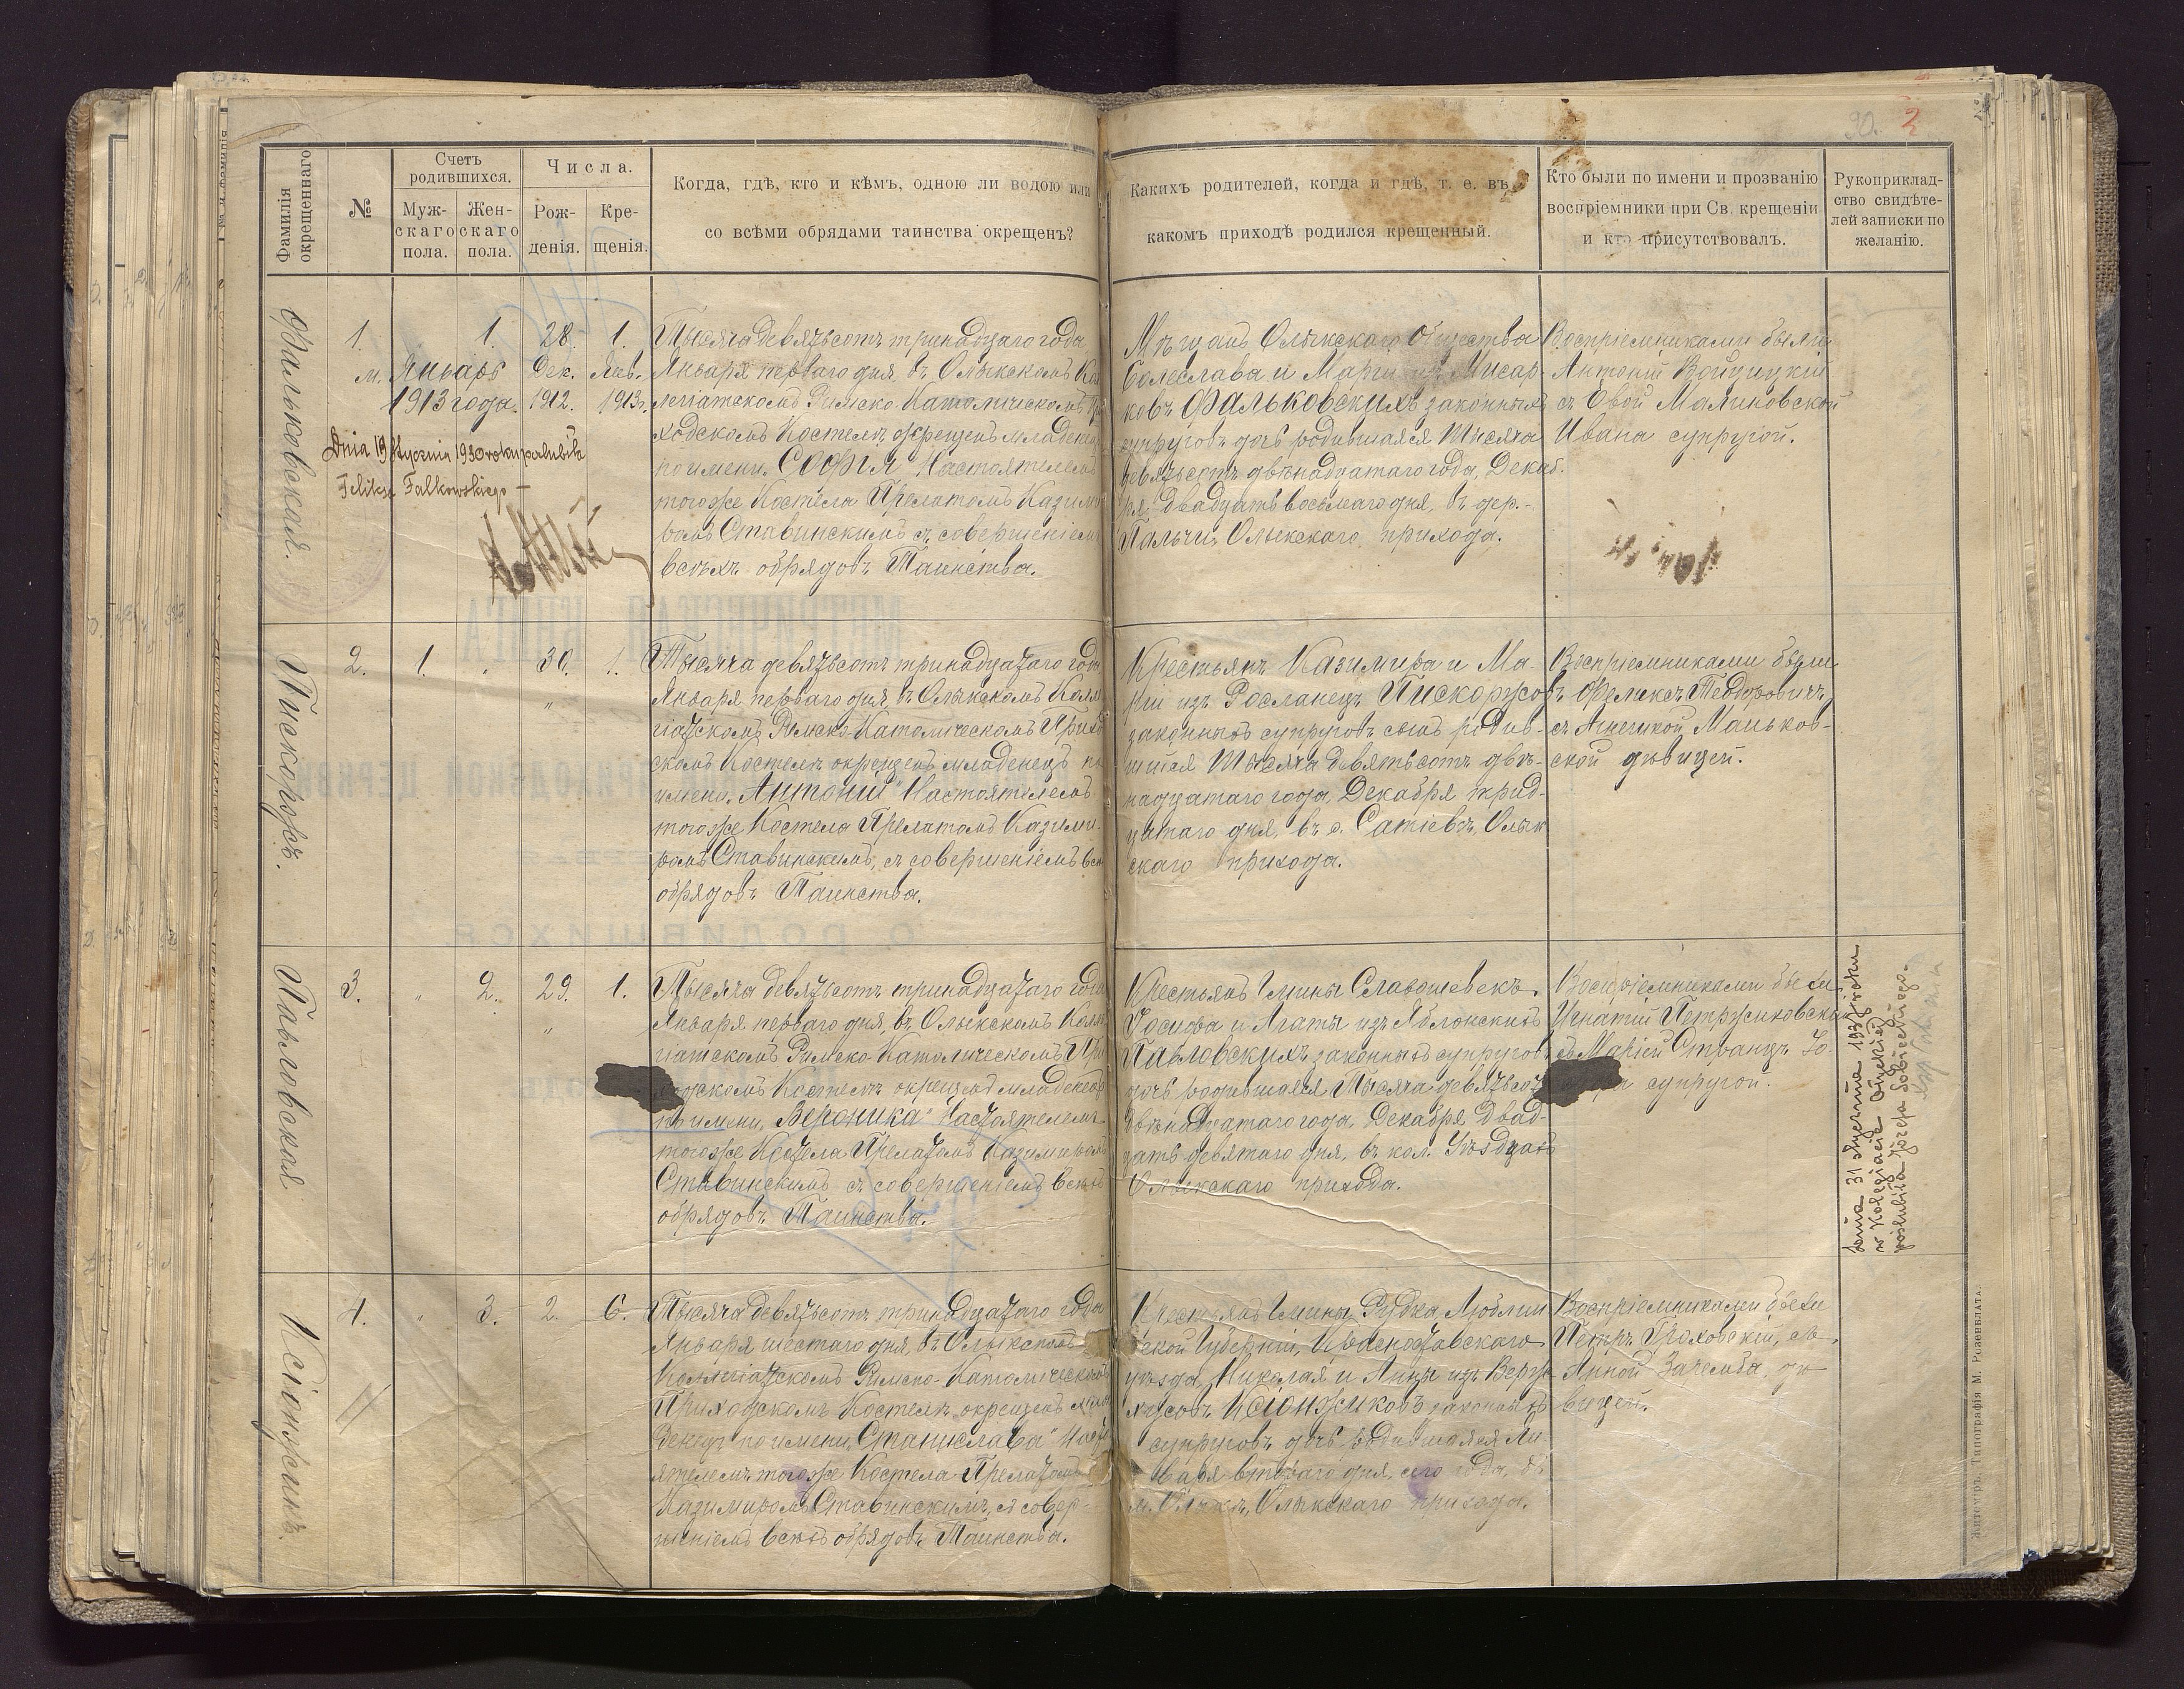 30. 2
Фамилія окрещеннаго
№
Счетъ родившихся.
Муж-скаго пола.
Жен-скаго пола.
Числа.
Рож-денія.
Кре-щенія.
Когда, гдѣ, кто и кѣмъ, одною ли водою или
со всѣми обрядами таинства окрещенъ?
Какихъ родителей, когда и гдѣ, т. е. въ
какомъ приходѣ родился крещенный.
Кто были по имени и прозванію
воспріемники при Св. крещеніи
и кто присутствовалъ.
Рукоприклад-
ство свидѣте-
лей записки по
желанію.
Фальковская.
1. 1. 28. 1.
м. Январь Дек. Янв.
1913 года. 1912. 1913 г.
Dnia 19 stycznia 1930 roku poślubiła
Feliksa Falkowskiego –
Тысяча девятьсотъ тринадцатаго года
Января перваго дня, въ Олыкскомъ Кол
легіатскомъ Римско-Католическомъ При
ходскомъ Костелѣ окрещенъ младенецъ
по имени „София“ Настоятелемъ
того же Костела Прелатомъ Казими
ромъ Ставинскимъ съ совершеніемъ
всѣхъ обрядовъ Таинства.
Мѣщанъ Олыкскаго Общества
Болеслава и Маріи изъ Мисар-
ковъ Фальковскихъ законныхъ
супруговъ дочь родившаяся Тысяча
девятьсотъ двѣнадцатаго года, Декаб-
ря двадцать восьмаго дня, въ дер.
Пальчи, Олыкскаго прихода.
Воспріемниками были
Антоній Войцицкій
съ Евой Малиновской
Ивана супругой.
Пискоржъ.
2. 1. „ 30. 1.
Тысяча девятьсотъ тринадцатаго года
Января перваго дня, въ Олыкскомъ Колле
гіатскомъ Римско-Католическомъ Приход
скомъ Костелѣ окрещенъ младенецъ по
имени „Антоній“ Настоятелемъ
того же Костела Прелатомъ Казими-
ромъ Ставинскимъ, съ совершеніемъ всѣхъ
обрядовъ Таинства.
Крестьянъ Казимира и Ма-
ріи изъ Росланецъ Пискоржовъ
законныхъ супруговъ сынъ родив-
шійся Тысяча девятьсотъ двѣ-
надцатаго года, Декабря трид-
цатаго дня, въ с. Сатіевѣ, Олык
скаго прихода.
Воспріемниками были
Феликсъ Теодоровичъ
съ Агнешкой Маньков-
ской дѣвицей.
Павловская
3. „ 2. 29. 1.
Тысяча девятьсотъ тринадцатаго года
Января перваго дня, въ Олыкскомъ Колле
гіатскомъ Римско-Католическомъ При
ходскомъ Костелѣ окрещенъ младенецъ
по имени „Вероника“ Настоятелемъ
того же Костела Прелатомъ Казимиромъ
Ставинскимъ съ совершеніемъ всѣхъ
обрядовъ Таинства.
Крестьянъ Гмины Славошевекъ,
Іосифа и Агаты изъ Яблонскихъ
Павловскихъ законныхъ супруговъ
дочь родившаяся Тысяча девятьсотъ
двѣнадцатаго года, Декабря двад-
цать девятаго дня, въ кол. Уѣздцахъ
Олыкскаго прихода.
Воспріемниками были
Игнатій Петрушковскій
съ Маріей Странцъ
супругой.
Dnia 31 stycznia 1937 roku
w Kolegiacie Ołyckiej
poślubiła Józefa Sobieckiego.
Ксіонжикъ.
4. „ 3. 2. 6.
Тысяча девятьсотъ тринадцатаго года
Января шестаго дня, въ Олыкскомъ
Коллегіатскомъ Римско-Католическомъ
Приходскомъ Костелѣ окрещенъ мла
денецъ по имени „Станислава“ Насто
ятелемъ того же Костела Прелатомъ
Казимиромъ Ставинскимъ, съ совер-
шеніемъ всѣхъ обрядовъ Таинства.
Крестьянъ Гмины Рудка Люблин
ской Губерніи, Красноставскаго
уѣзда, Николая и Анны изъ Верж-
хусовъ Ксіонжиковъ законныхъ
супруговъ дочь родившаяся Ян-
варя втораго дня, сего года, въ
м. Олыкѣ, Олыкскаго прихода.
Воспріемниками были
Петръ Гроховскій, съ
Анной Заремба, дѣ-
вицей.
Житоміръ. Типографія М. Розенблата.